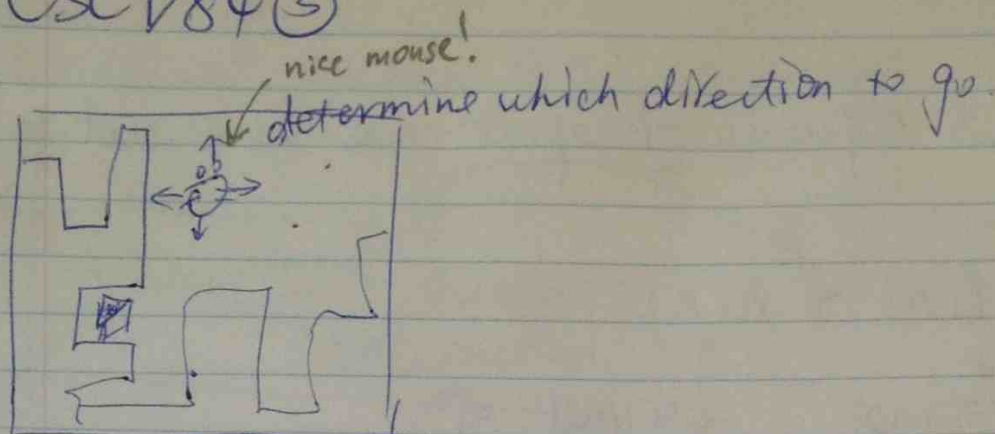 CSC D84 ③
nice mouse!
determine which direction to go.